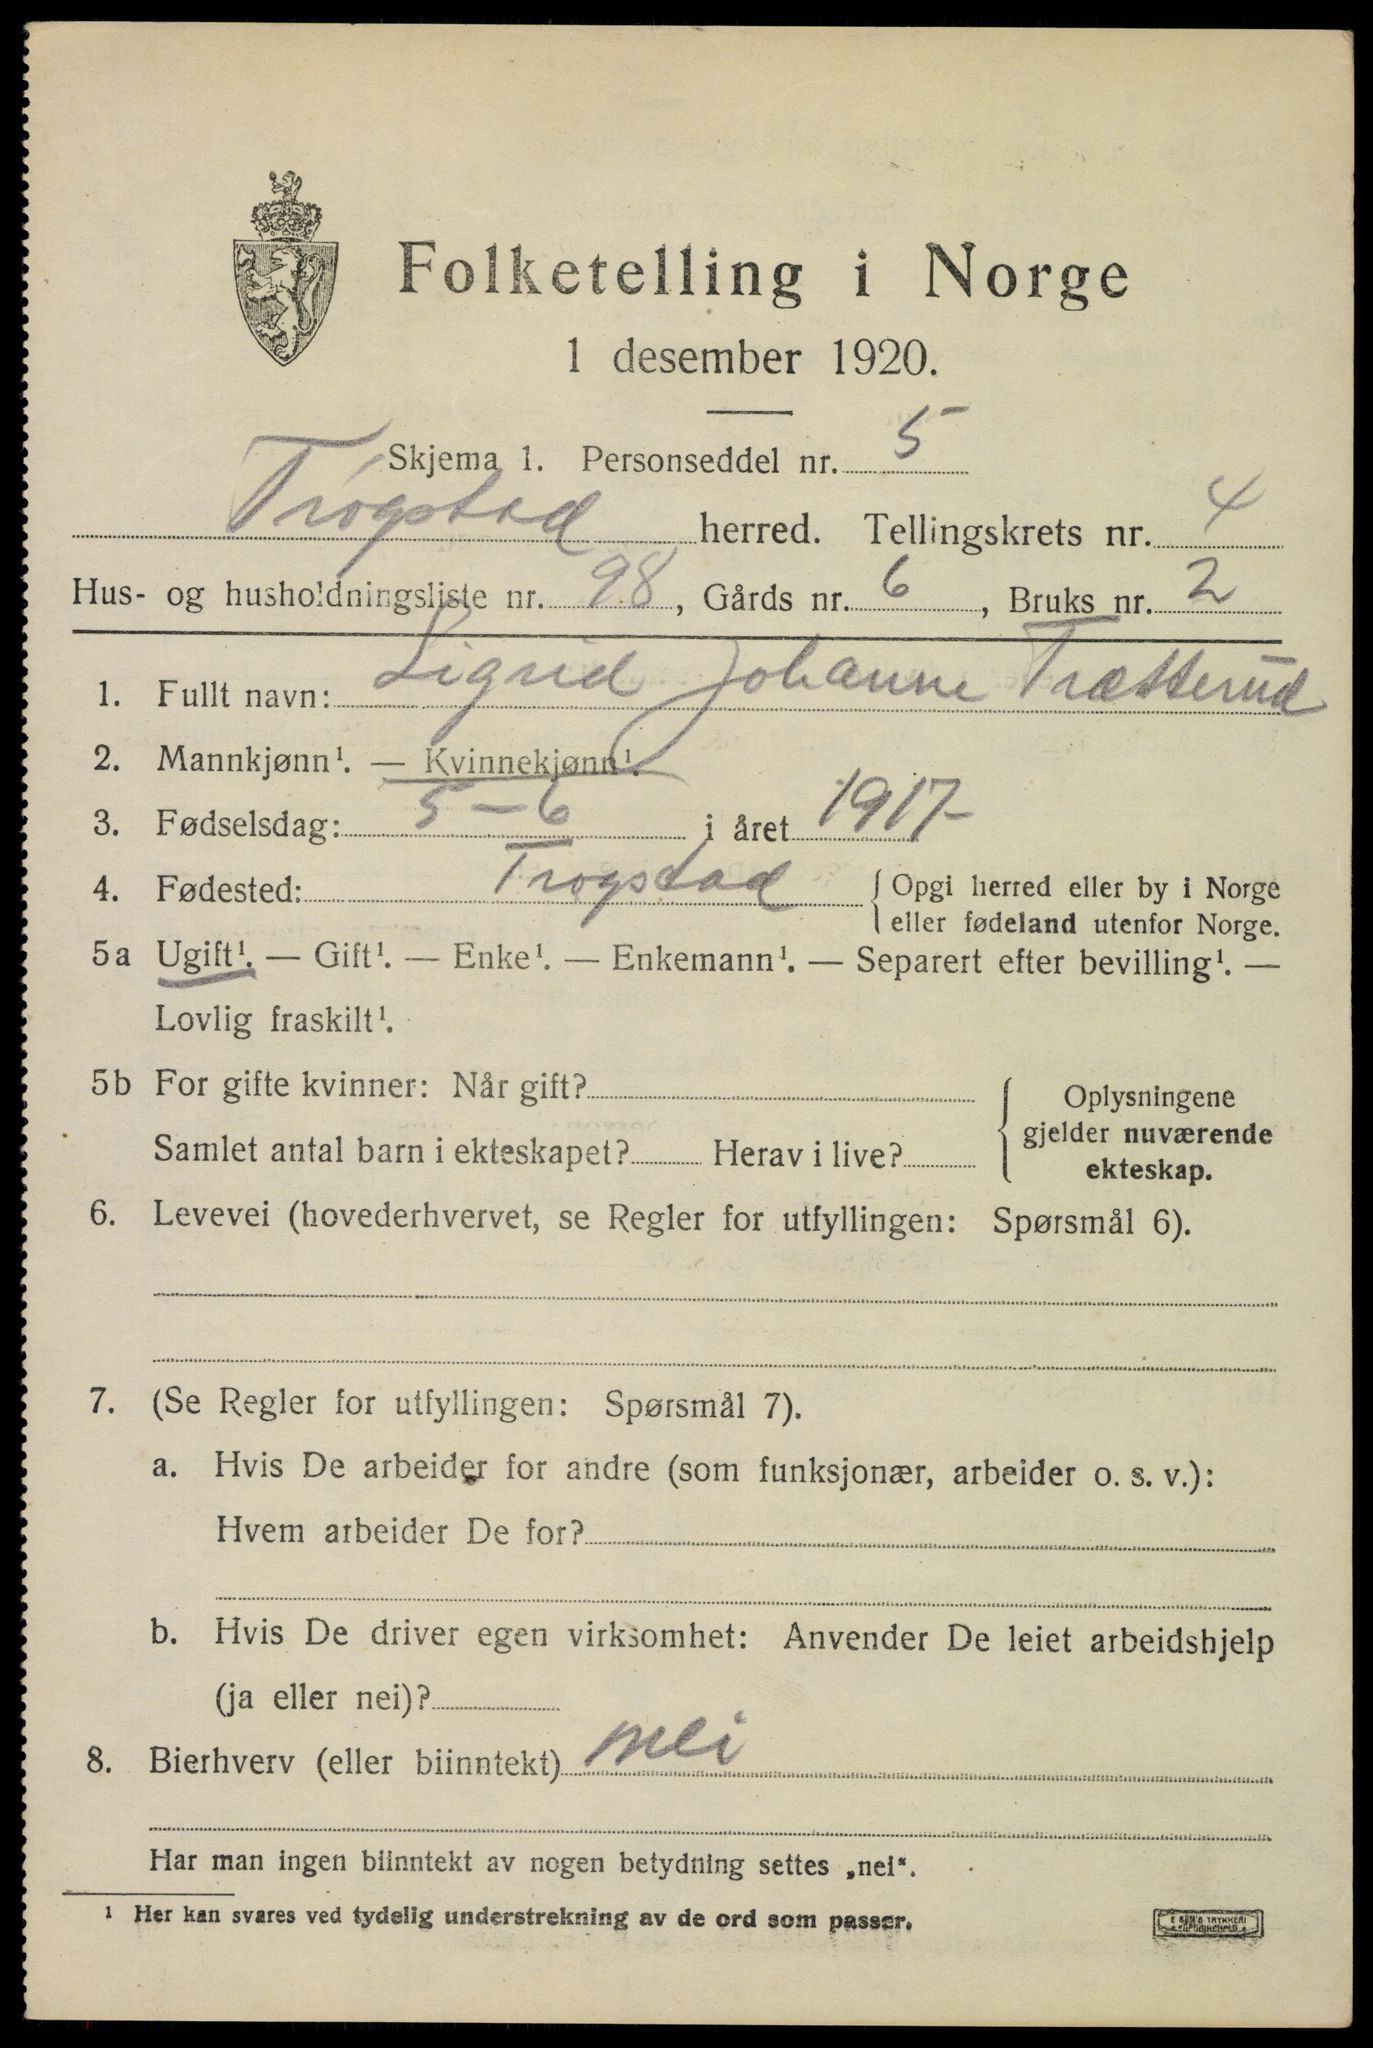 Folketelling i Norge
1 desember 1920.
Skjema 1. Personseddel nr. 5
Trøgstad herred. Tellingskrets nr. 4
Hus- og husholdningsliste nr. 98, Gårds nr. 6, Bruks nr. 2
1. Fullt navn: Sigrid Johanne Trætterud
2. Mannkjønn¹. — Kvinnekjønn¹.
3. Fødselsdag: 5-6 i året 1917-
4. Fødested: Trøgstad { Opgi herred eller by i Norge
eller fødeland utenfor Norge.
5a Ugift¹. — Gift¹. — Enke¹. — Enkemann¹. — Separert efter bevilling¹. —
Lovlig fraskilt¹.
5b For gifte kvinner: Når gift? { Oplysningene
gjelder nuværende
Samlet antal barn i ekteskapet? Herav i live?
ekteskap.
6. Levevei (hovederhvervet, se Regler for utfyllingen: Spørsmål 6).
7. (Se Regler for utfyllingen: Spørsmål 7).
a. Hvis De arbeider for andre (som funksjonær, arbeider o. s. v.):
Hvem arbeider De for?
b. Hvis De driver egen virksomhet: Anvender De leiet arbeidshjelp
(ja eller nei)?
8. Bierhverv (eller biinntekt) nei
Har man ingen biinntekt av nogen betydning settes „nei“.
¹ Her kan svares ved tydelig understrekning av de ord som passer.